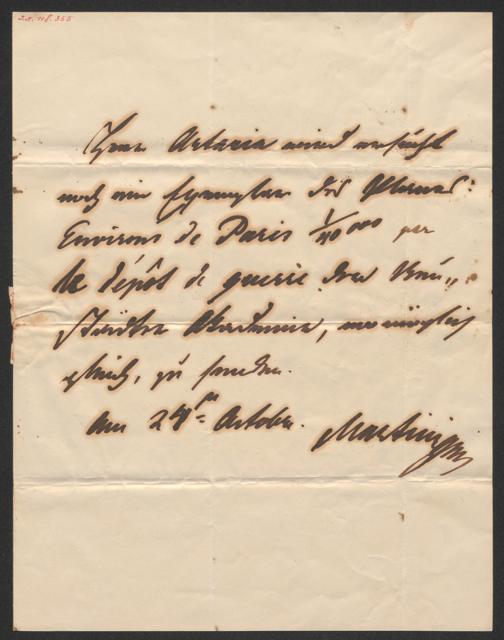 I.N. 118.355
Herr Artaria wird ersucht
noch ein Exemplar des Planes:
Environs de Paris 1/40000 par
le dépôt de guerre der Neu„
städter Akademie, wo möglich
gleich, zu senden.
Am 24ten October.
Martini